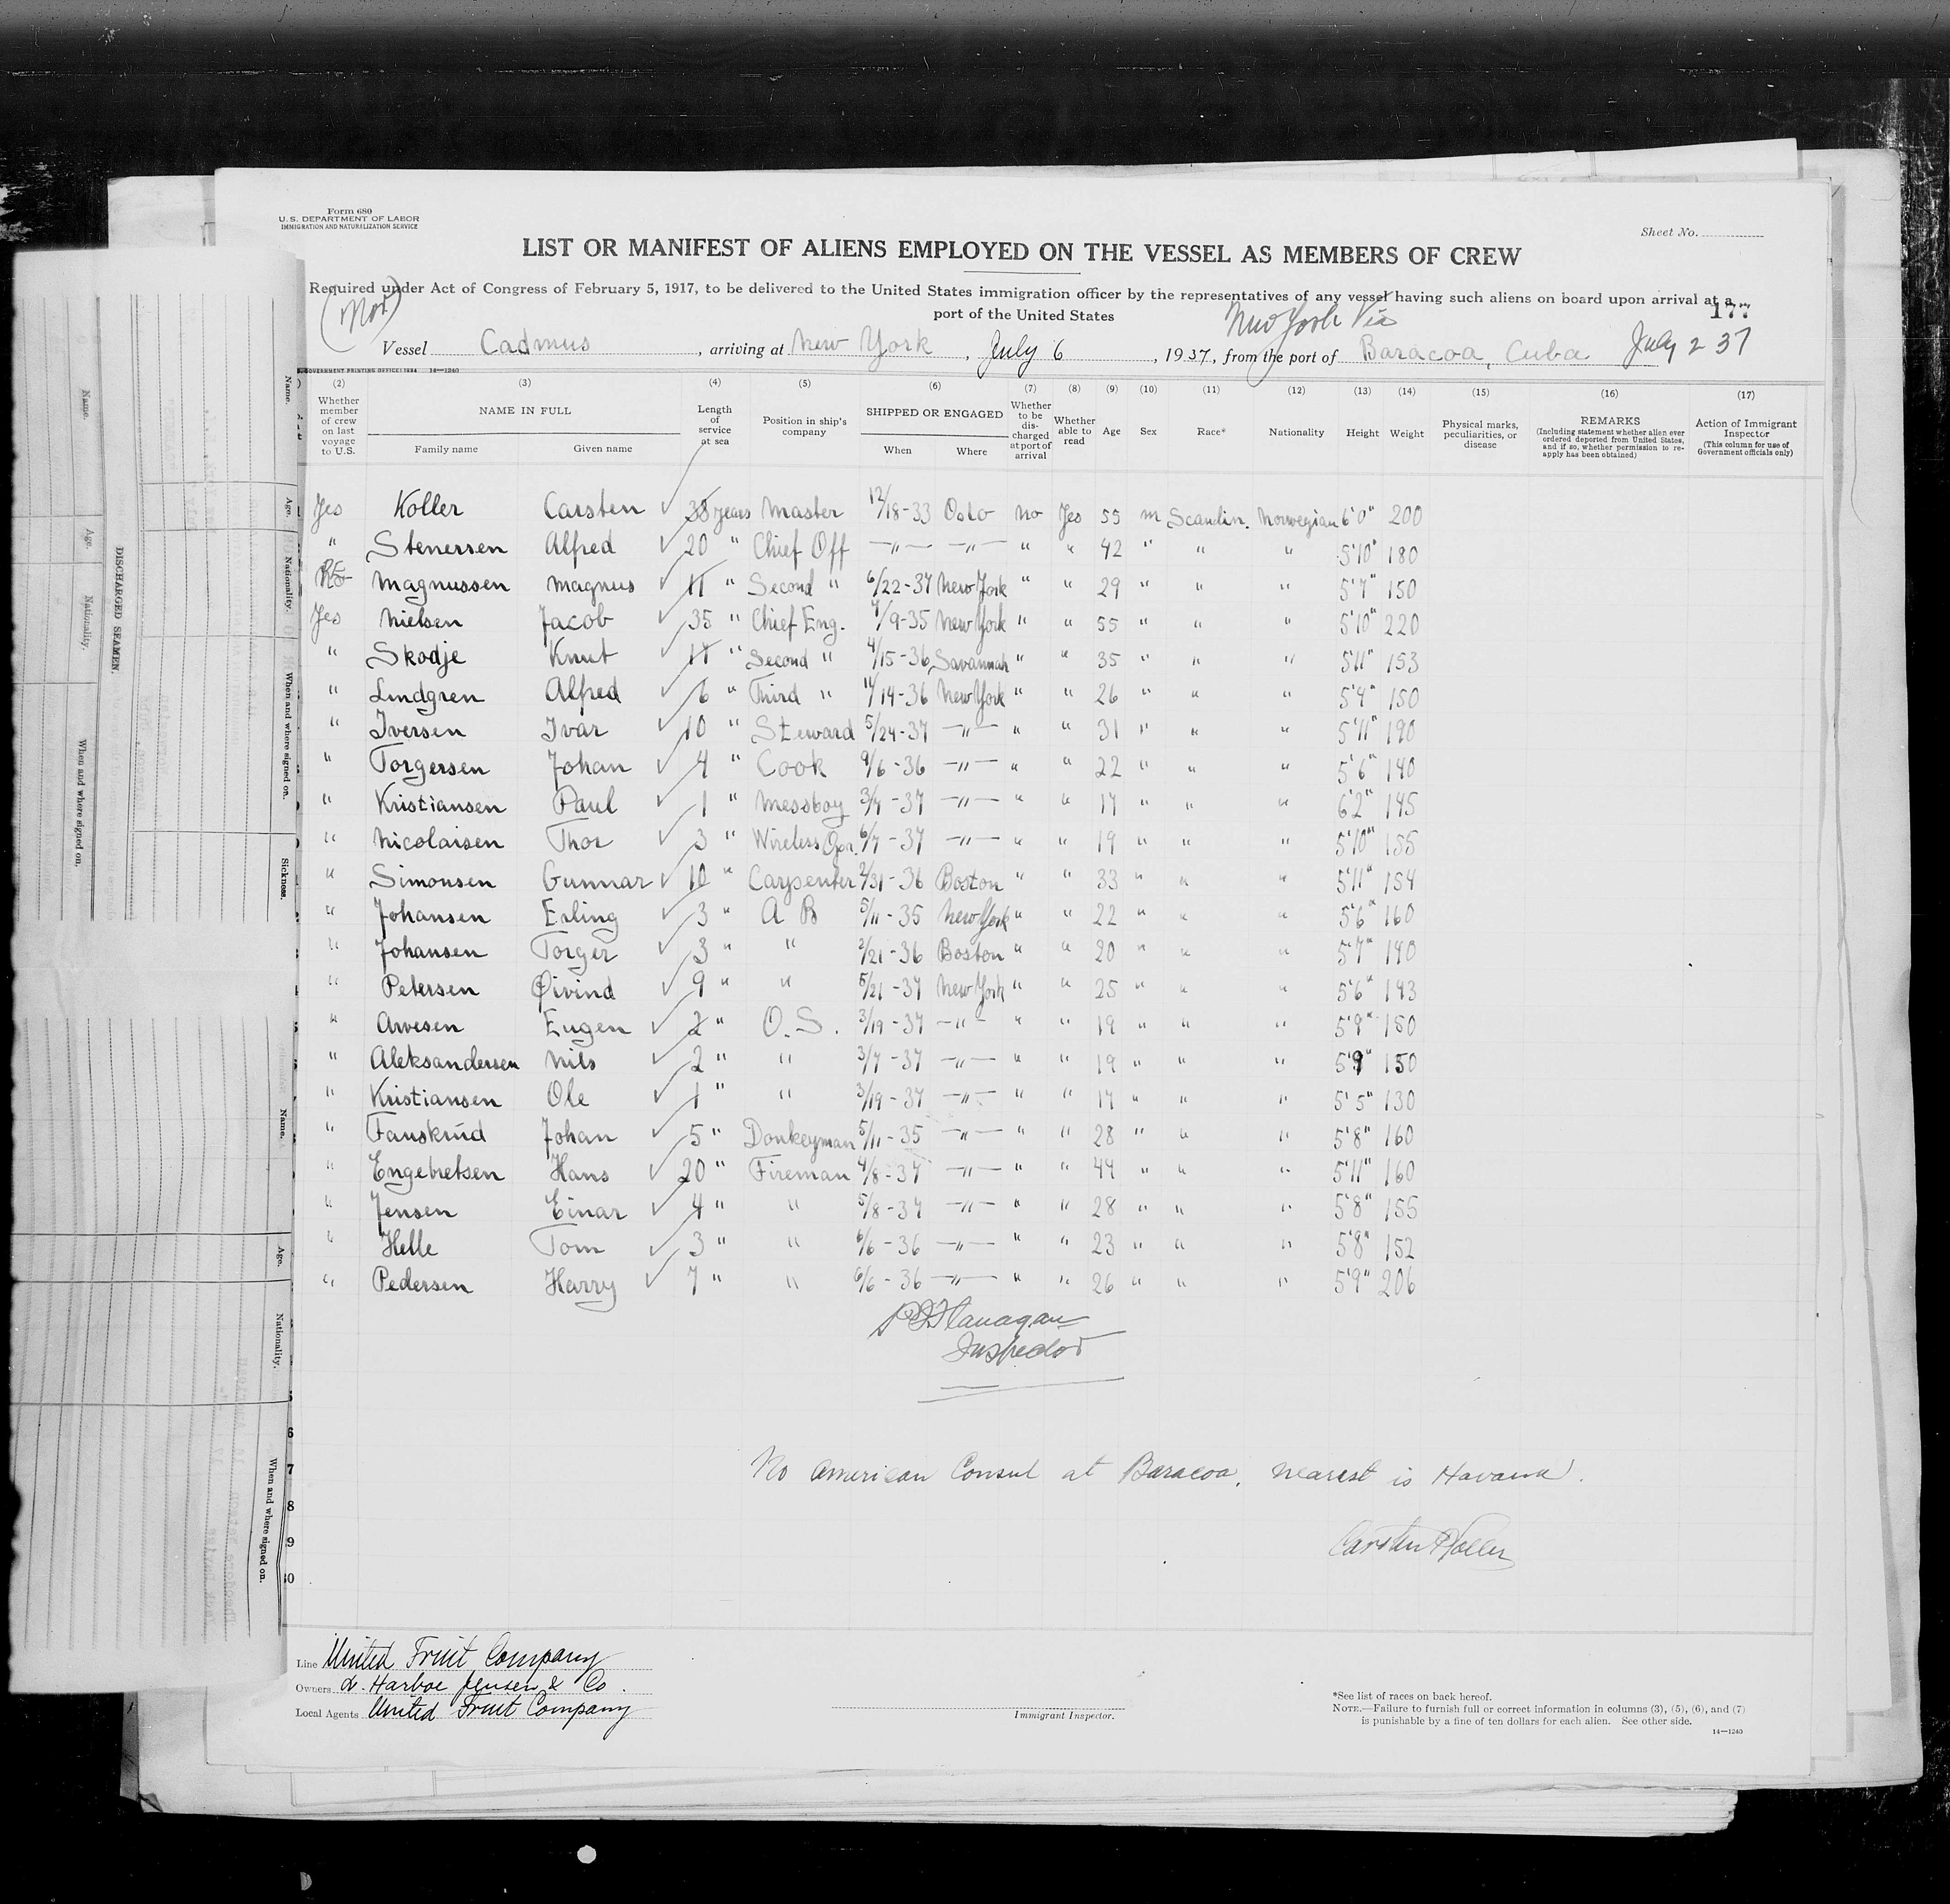 Form 680
U. S. DEPARTMENT OF LABOR
IMMIGRATION AND NATURALIZATION SERVICE
Sheet No.
LIST OR MANIFEST OF ALIENS EMPLOYED ON THE VESSEL AS MEMBERS OF CREW
Required under Act of Congress of February 5, 1917, to be delivered to the United States immigration officer by the representatives of any vessel having such aliens on board upon arrival at a
port of the United States
177
(Nor)
New York Via
Vessel Cadmus, arriving at New York, July 6, 1937, from the port of Baracoa, Cuba July 2 37
GOVERNMENT PRINTING OFFICE: 1934 14—1240
(2) (3) (4) (5) (6) (7) (8) (9) (10) (11) (12) (13) (14) (15) (16) (17)
Whether member of crew on last voyage to U.S.
NAME IN FULL
Family name Given name
Length of service at sea
Position in ship's company
SHIPPED OR ENGAGED
When Where
Whether to be discharged at port of arrival
Whether able to read
Age
Sex
Race*
Nationality
Height
Weight
Physical marks, peculiarities, or disease
REMARKS
(Including statement whether alien ever ordered deported from United States, and if so, whether permission to reapply has been obtained)
Action of Immigrant Inspector
(This column for use of Government officials only)
Yes Koller Carsten 38 years Master 12/18-33 Oslo no Yes 55 m Scandin. Norwegian 6'0" 200
" Stenersen Alfred 20 " Chief Off —"— —"— " " 42 " " " 5'10" 180
Magnussen Magnus 11 " Second " 6/22-37 New York " " 29 " " " 5'7" 150
Yes Nielsen Jacob 35 " Chief Eng. 4/9-35 New York " " 55 " " " 5'10" 220
" Skodje Knut 17 " Second " 4/15-36 Savannah " " 35 " " " 5'11" 153
" Lindgren Alfred 6 " Third " 11/14-36 New York " " 26 " " " 5'4" 150
" Iversen Ivar 10 " Steward 5/24-37 —"— " " 31 " " " 5'11" 190
" Torgersen Johan 4 " Cook 9/6-36 —"— " " 22 " " " 5'6" 140
" Kristiansen Paul 1 " Messboy 3/7-37 —"— " " 17 " " " 6'2" 145
" Nicolaisen Thor 3 " Wireless Opr. 6/7-37 —"— " " 19 " " " 5'10" 155
" Simonsen Gunnar 10 " Carpenter 2/21-36 Boston " " 33 " " " 5'11" 154
" Johansen Erling 3 " A B 5/11-35 New York " " 22 " " " 5'6" 160
" Johansen Torger 3 " " 2/21-36 Boston " " 20 " " " 5'7" 140
" Petersen Øivind 9 " " 5/21-37 New York " " 25 " " " 5'6" 143
" Arvesen Eugen 2 " O.S. 3/19-37 —"— " " 19 " " " 5'9" 150
" Aleksandersen Nils 2 " " 3/7-37 —"— " " 19 " " " 5'9" 150
" Kristiansen Ole 1 " " 3/19-37 —"— " " 17 " " " 5'5" 130
" Fauskrud Johan 5 " Donkeyman 5/11-35 —"— " " 28 " " " 5'8" 160
" Engebretsen Hans 20 " Fireman 4/8-37 —"— " " 44 " " " 5'11" 160
" Jensen Einar 4 " " 5/8-37 —"— " " 28 " " " 5'8" 155
" Helle Tom 3 " " 6/6-36 —"— " " 23 " " " 5'8" 152
" Pedersen Harry 7 " " 6/6-36 —"— " " 26 " " " 5'9" 206
Flanagan
Inspector
6
7
8
9
30
No American Consul at Baracoa, nearest is Havana.
Carsten Koller
Line United Fruit Company
Owners L. Harboe Jensen & Co.
Local Agents United Fruit Company
Immigrant Inspector.
*See list of races on back hereof.
NOTE.—Failure to furnish full or correct information in columns (3), (5), (6), and (7)
is punishable by a fine of ten dollars for each alien. See other side.
14—1240
DISCHARGED SEAMEN.
Name.
Age.
Nationality.
When and where signed on.
Name.
Age.
Nationality.
When and where signed on.
Sickness.
Name.
Age.
Nationality.
When and where signed on.